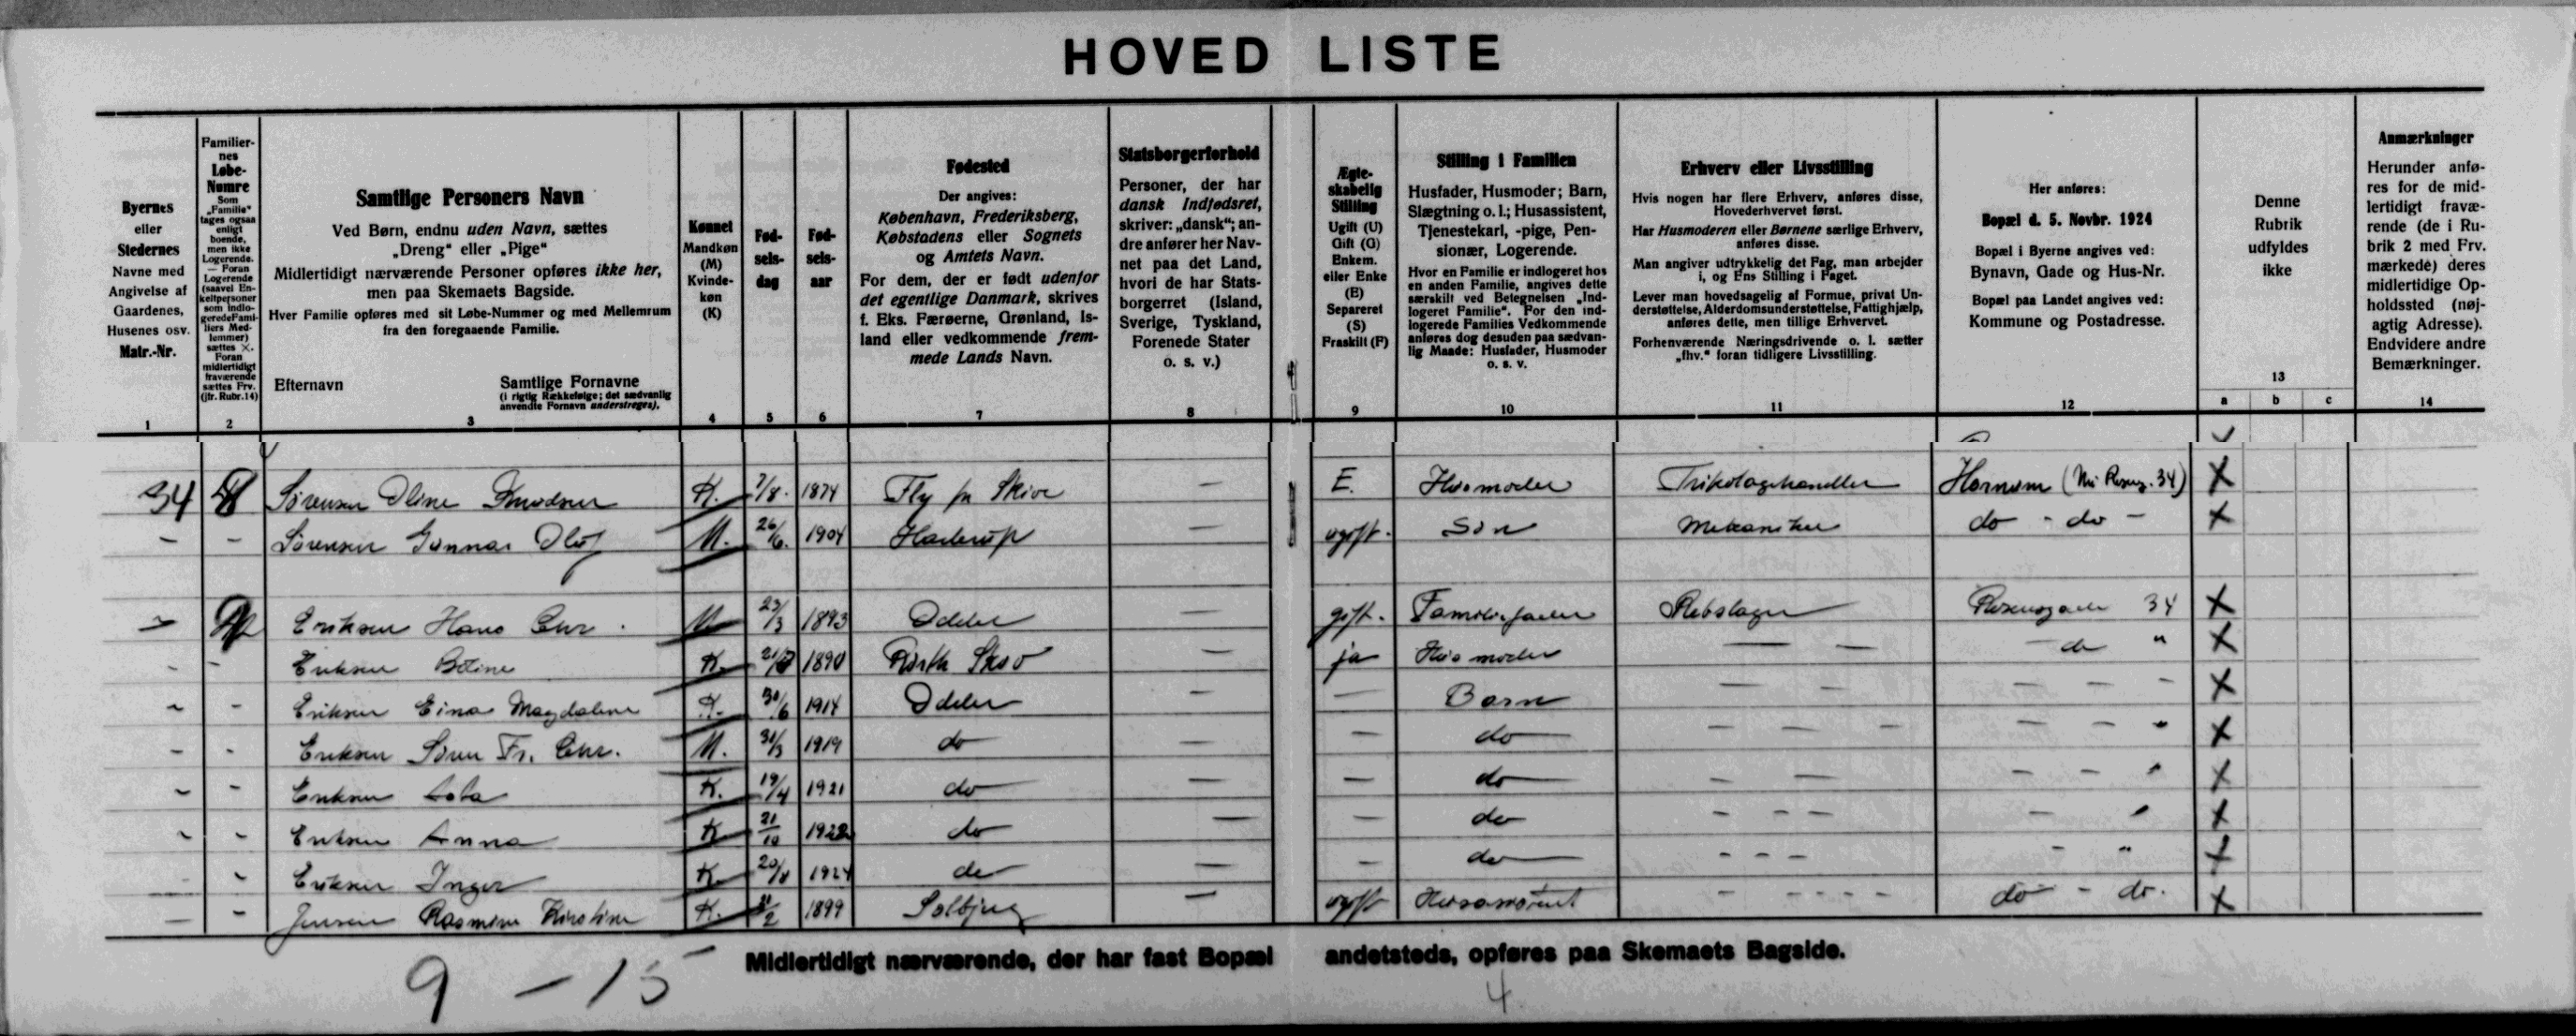 HOVED LISTE
Byernes
eller
Stedernes
Navne med
Angivelse af
Gaardenes,
Husenes osv.
Matr.-Nr.
1
Familier-
nes
Løbe-
Numre
Som
„Familie"
tages ogsaa
enligt
boende,
men ikke
Logerende.
— Foran
Logerende
(saavel En-
keltpersoner
som indlo-
geredeFami-
liers Med-
lemmer)
sættes ×.
Foran
midlertidigt
fraværende
sættes Frv.
(jfr. Rubr.14)
2
Samtlige Personers Navn
Ved Børn, endnu uden Navn, sættes
„Dreng" eller „Pige"
Midlertidigt nærværende Personer opføres ikke her,
men paa Skemaets Bagside.
Hver Familie opføres med sit Løbe-Nummer og med Mellemrum
fra den foregaaende Familie.
Efternavn
Samtlige Fornavne
(i rigtig Rækkefølge; det sædvanlig
anvendte Fornavn understreges).
3
Kønnet
Mandkøn
(M)
Kvinde-
køn
(K)
4
Fød-
sels-
dag
5
Fød-
sels-
aar
6
Fødested
Der angives:
København, Frederiksberg,
Købstadens eller Sognets
og Amtets Navn.
For dem, der er født udenfor
det egentlige Danmark, skrives
f. Eks. Færøerne, Grønland, Is-
land eller vedkommende frem-
mede Lands Navn.
7
Statsborgerforhold
Personer, der har
dansk Indfødsret,
skriver: „dansk"; an-
dre anfører her Nav-
net paa det Land,
hvori de har Stats-
borgerret (Island,
Sverige, Tyskland,
Forenede Stater
o. s. v.)
8
Ægte-
skabelig
Stilling
Ugift (U)
Gift (G)
Enkem.
eller Enke
(E)
Separeret
(S)
Fraskilt (F)
9
Stilling i Familien
Husfader, Husmoder; Barn,
Slægtning o. l.; Husassistent,
Tjenestekarl, -pige, Pen-
sionær, Logerende.
Hvor en Familie er indlogeret hos
en anden Familie, angives dette
særskilt ved Betegnelsen „Ind-
logeret Familie". For den ind-
logerede Families Vedkommende
anføres dog desuden paa sædvan-
lig Maade: Husfader, Husmoder
o. s. v.
10
Erhverv eller Livsstilling
Hvis nogen har flere Erhverv, anføres disse,
Hovederhvervet først.
Har Husmoderen eller Børnene særlige Erhverv,
anføres disse.
Man angiver udtrykkelig det Fag, man arbejder
i, og Ens Stilling i Faget.
Lever man hovedsagelig af Formue, privat Un-
derstøttelse, Alderdomsunderstøttelse, Fattighjælp,
anføres dette, men tillige Erhvervet.
Forhenværende Næringsdrivende o. l. sætter
„fhv." foran tidligere Livsstilling.
11
Her anføres:
Bopæl d. 5. Novbr. 1924
Bopæl i Byerne angives ved:
Bynavn, Gade og Hus-Nr.
Bopæl paa Landet angives ved:
Kommune og Postadresse.
12
Denne
Rubrik
udfyldes
ikke
13
a b c
Anmærkninger
Herunder anfø-
res for de mid-
lertidigt fravæ-
rende (de i Ru-
brik 2 med Frv.
mærkede) deres
midlertidige Op-
holdssted (nøj-
agtig Adresse).
Endvidere andre
Bemærkninger.
14
34 Sørensen Oline Knudsen K. 7/8. 1874 Fly pr Skive — E. Husmoder Trikotagehandler Hornum 34) X
- - Sørensen Gunnar Oluf M. 26/6. 1904 Haderup — ugift. Søn Mekaniker do - do - X
- Eriksen Hans Chr. M 23/3 1893 Odder — gift. Familiefader Rebslager Rosensgade 34 X
- - Eriksen Botine K. 1890 Skov — ja Husmoder — — do " X
- - Eriksen Eina Magdalene K. 30/6 1914 Odder — — Barn — — — — - X
- - Eriksen Søren Fr. Chr. M. 31/3 1919 do — — do — — — — — " X
- - Eriksen K. 19/4 1921 do — — do — — — — " X
- - Eriksen Anna K 21/10 1922 do — — do - - - — " X
- - Eriksen Inger K. 20/8 1924 do — — do - - - - " X
— - Jensen Rasmine Kirstine K. 1899 Solbjerg — ugift Husassistent - - - - - do - do. X
Midlertidigt nærværende, der har fast Bopæl andetsteds, opføres paa Skemaets Bagside.
9 — 15
4